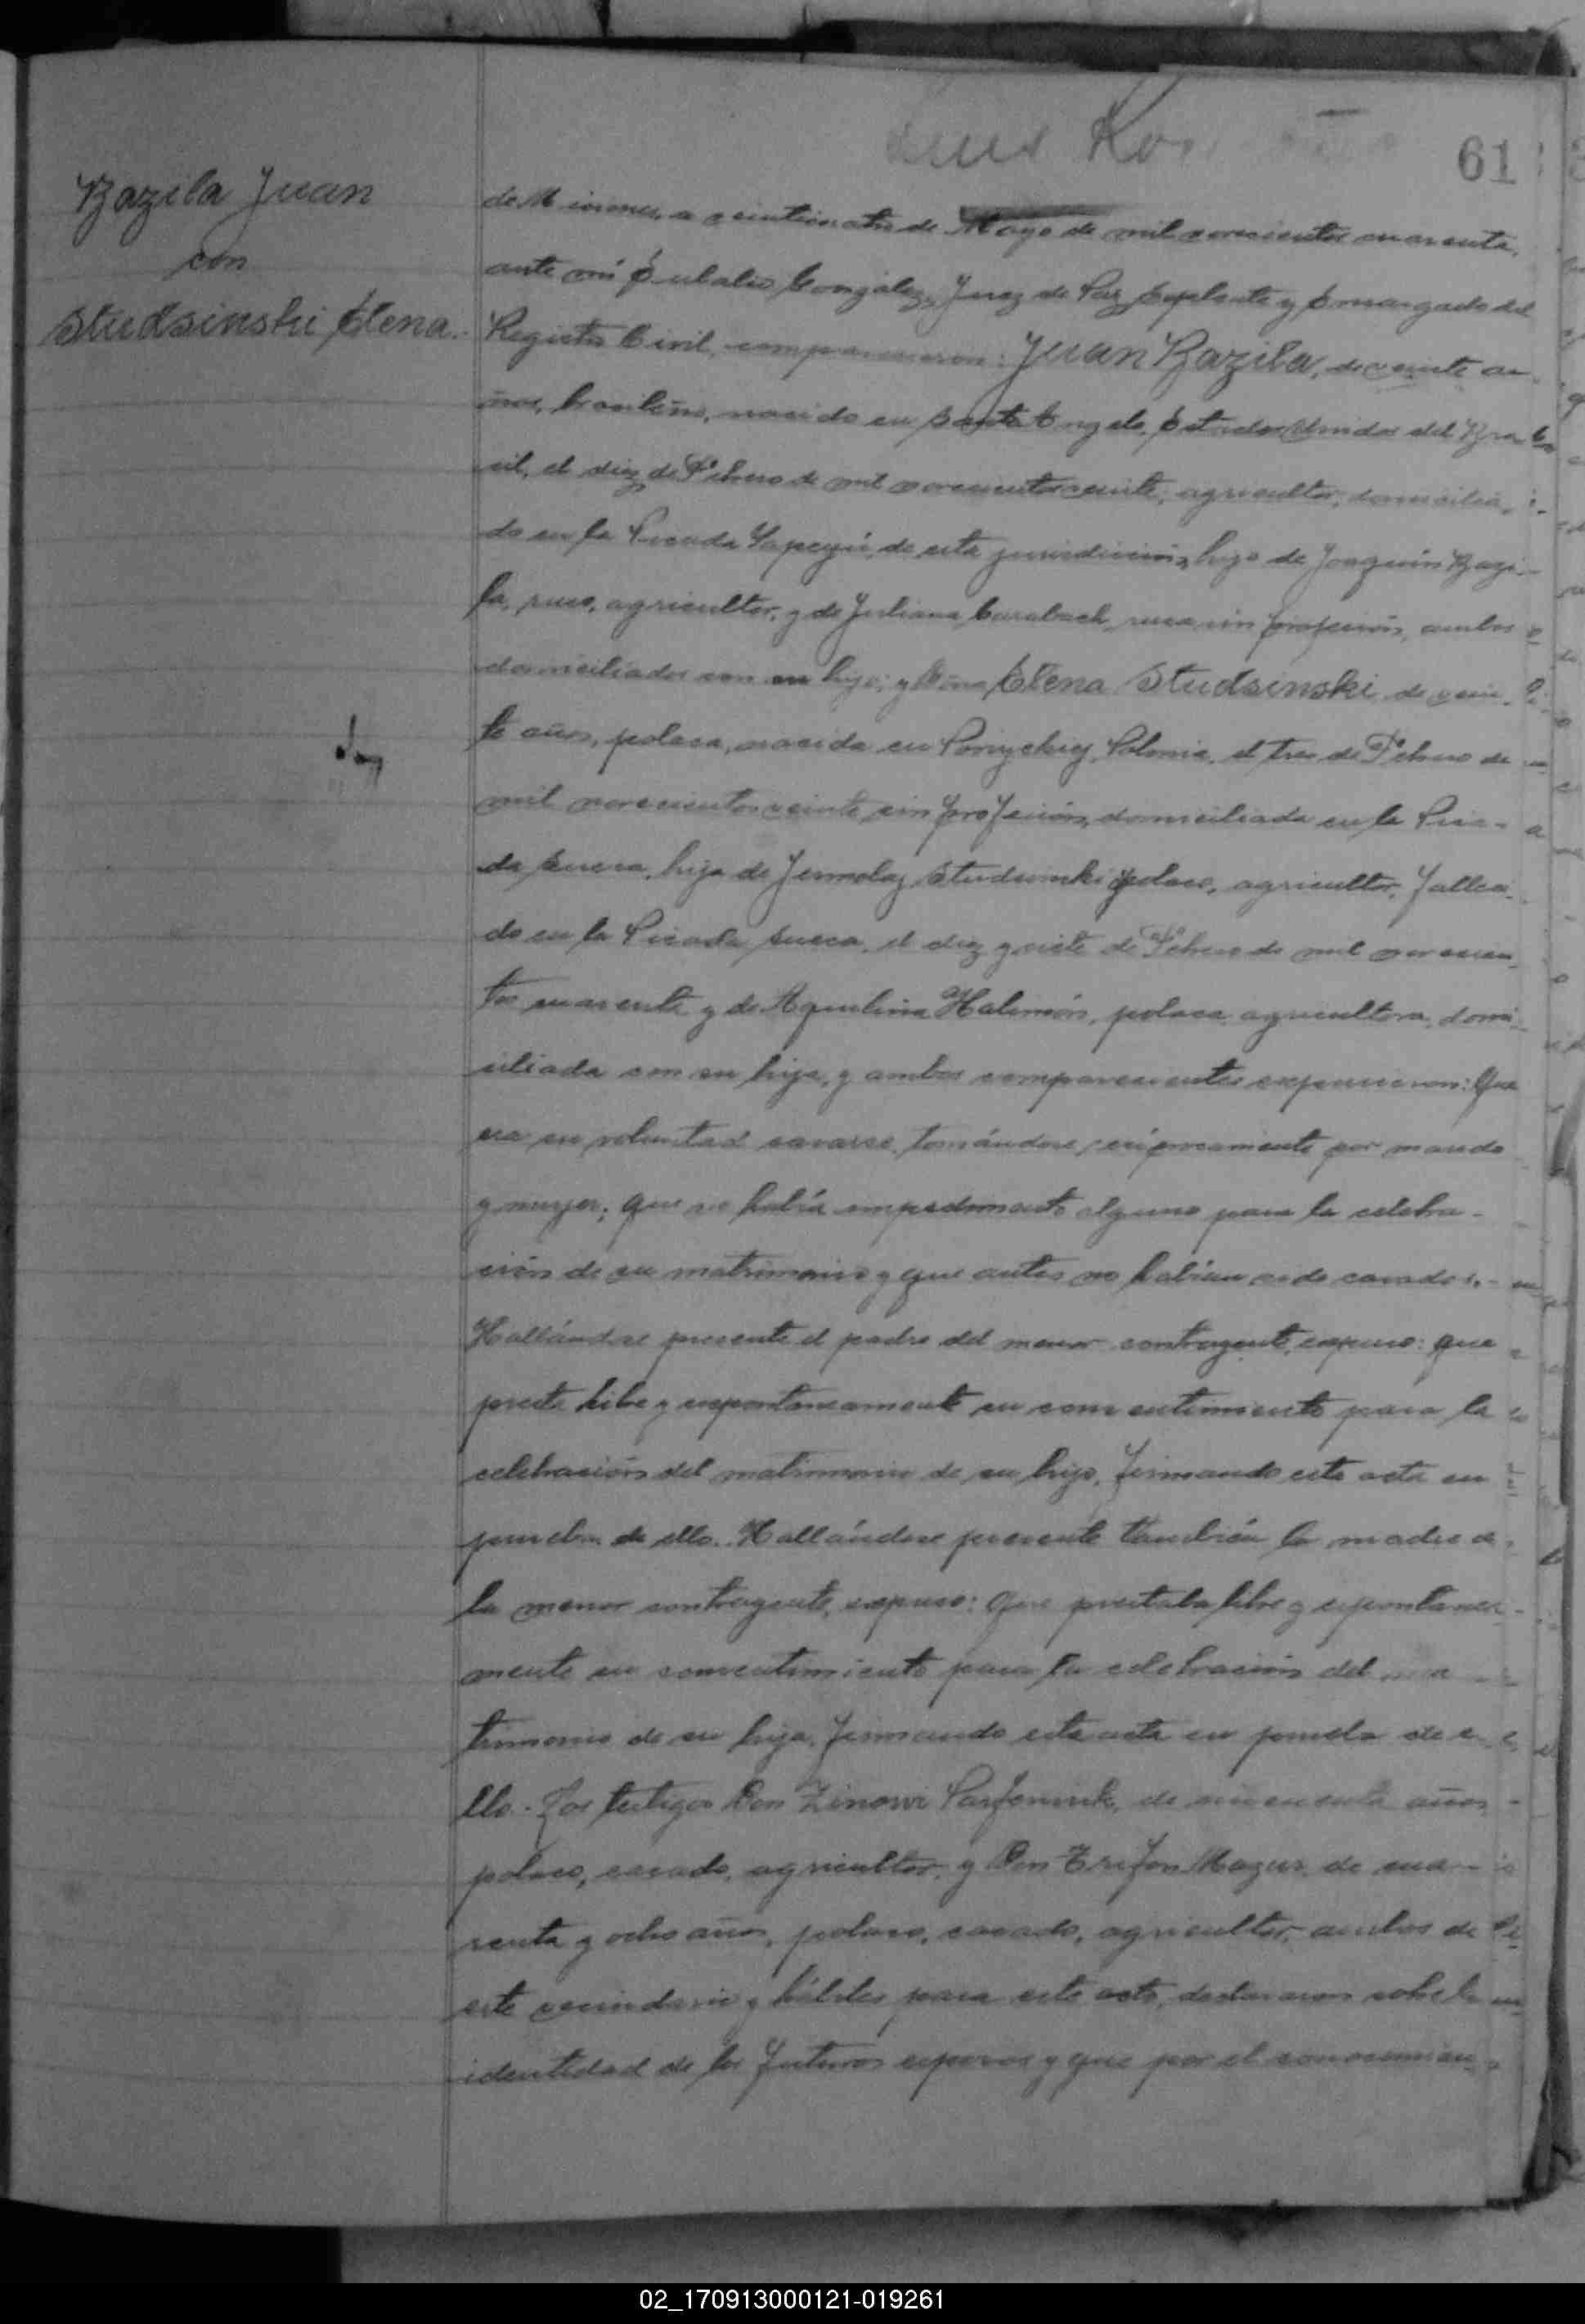 61
Bazila Juan
con
Studsinski Elena.
de Misiones, a veinticuatro de Mayo de mil novecientos cuarenta,
ante mí Eulalio González, Juez de Paz Suplente y Encargado del
Registro Civil, comparecieron: Juan Bazila, de veinte a-
ños, brasileño, nacido en Santo Angelo, Estados Unidos del Bra-
sil, el diez de Febrero de mil novecientos veinte, agricultor, domicilia-
do en la Picada Yapeyú, de esta jurisdicción, hijo de Joaquín Bazi-
la, ruso, agricultor, y de Juliana Carabach, rusa, sin profesión, ambos
domiciliados con su hijo; y Doña Elena Studsinski, de vein-
te años, polaca, nacida en Polonia, el tres de Febrero de
mil novecientos veinte, sin profesión, domiciliada en la Pica-
da Sueca, hija de Jermolaj Studsinski, polaco, agricultor, falleci-
do en la Picada Sueca, el diez y siete de Febrero de mil novecien-
tos cuarenta y de Aquilina Halimón, polaca, agricultora, domi-
ciliada con su hija, y ambos comparecientes expusieron: Que
era su voluntad casarse, tomándose recíprocamente por marido
y mujer; que no había impedimento alguno para la celebra-
ción de su matrimonio y que antes no habían sido casados.-
Hallándose presente el padre del menor contrayente, expuso: que
presta libre y espontáneamente su consentimiento para la
celebración del matrimonio de su hijo, firmando esta acta en
prueba de ello. Hallándose presente también la madre de
la menor contrayente, expuso: Que prestaba libre y espontánea-
mente su consentimiento para la celebración del ma-
trimonio de su hija, firmando esta acta en prueba de e-
llo. Los testigos Don Zinowi Parfeniuk, de cincuenta años,
polaco, casado, agricultor, y Don Trifon Mazur, de cua-
renta y ocho años, polaco, casado, agricultor, ambos de
este vecindario y hábiles para este acto, declararon sobre la
identidad de los futuros esposos y que por el conocimien-
02_170913000121-019261